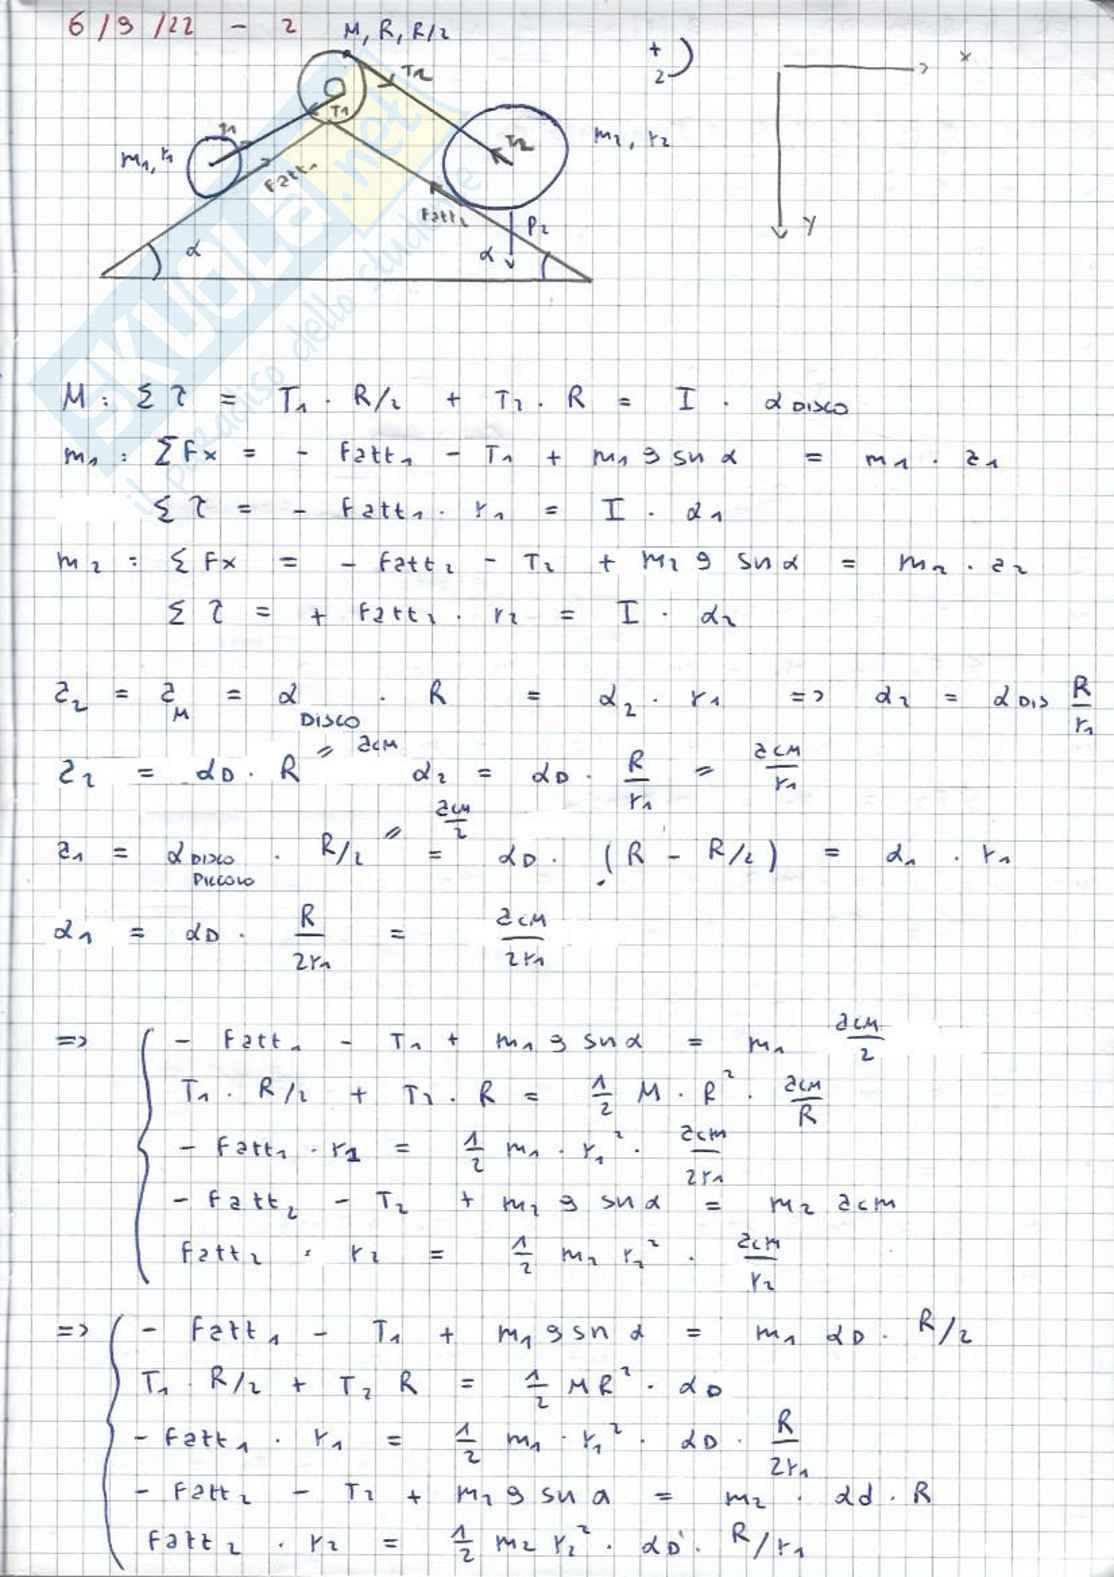 6/9/22 - 2 M, R, R/2
+ 2 x
T2
T1
T1 T2 m2, r2
m1, r1
Fatt1
Fatt2 P2 y
α α
SKUOLA.net
il paradiso dello studente
M: Σ τ = T1 · R/2 + T2 · R = I · α DISCO
m1: ΣFx = - Fatt1 - T1 + m1 g sn α = m1 · a1
Σ τ = - Fatt1 · r1 = I · α1
m2: ΣFx = - Fatt2 - T2 + m2 g sn α = m2 · a2
Σ τ = + Fatt2 · r2 = I · α2
a2 = aM = α DISCO · R = α2 · r1 => α2 = α DIS R/r1
a2 = αD · R = acm α2 = αD · R/r1 = acm/r1
a1 = α DISCO PICCOLO · R/2 = acm/2 = αD · (R - R/2) = α1 · r1
α1 = αD · R/2r1 = acm/2r1
=> { - Fatt1 - T1 + m1 g sn α = m1 acm/2
T1 · R/2 + T2 · R = 1/2 M · R² · acm/R
- Fatt1 · r1 = 1/2 m1 · r1² · acm/2r1
- Fatt2 - T2 + m2 g sn α = m2 acm
Fatt2 · r2 = 1/2 m2 r2² · acm/r2
=> { - Fatt1 - T1 + m1 g sn α = m1 αD · R/2
T1 · R/2 + T2 R = 1/2 MR² · αD
- Fatt1 · r1 = 1/2 m1 · r1² · αD · R/2r1
- Fatt2 - T2 + m2 g sn α = m2 · αd · R
Fatt2 · r2 = 1/2 m2 r2² · αD · R/r1